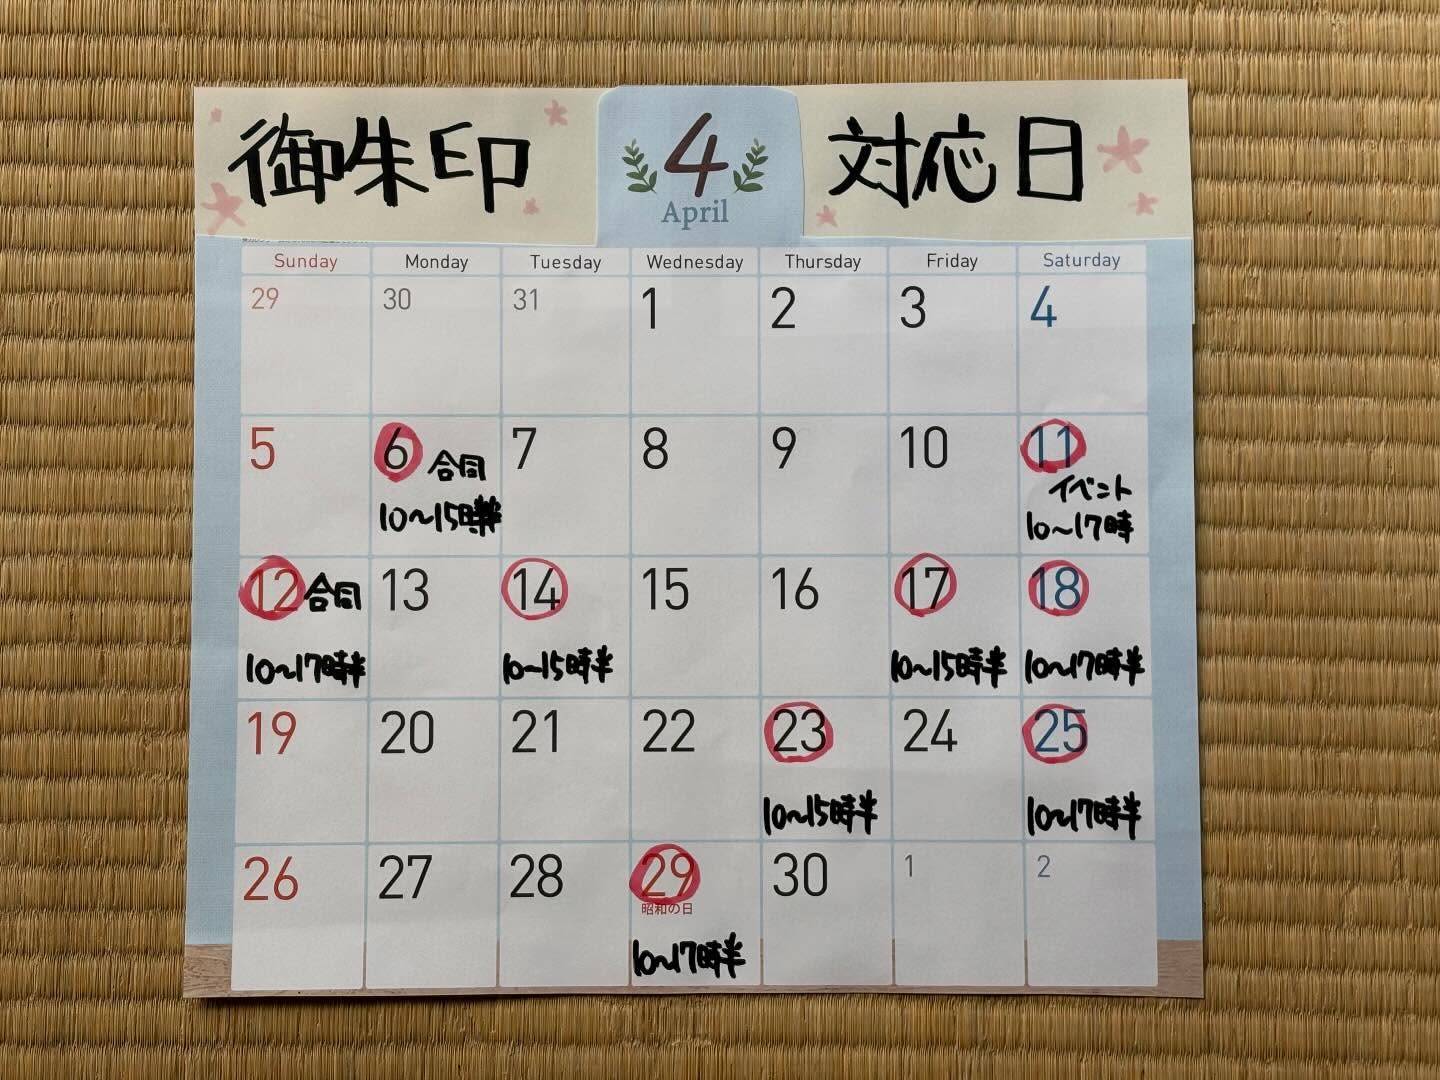 御朱印 4 対応日
April
Sunday Monday Tuesday Wednesday Thursday Friday Saturday
29 30 31 1 2 3 4
5 6 合同 7 8 9 10 11
イベント
10〜15時半 10〜17時
12 合同 13 14 15 16 17 18
10〜17時半 10〜15時半 10〜15時半 10〜17時半
19 20 21 22 23 24 25
10〜15時半 10〜17時半
26 27 28 29 30 1 2
昭和の日
10〜17時半